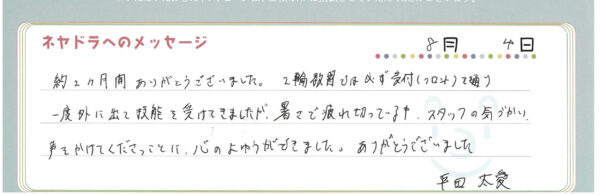 ネヤドラへのメッセージ
8月 4日
約2ヶ月間ありがとうございました。2輪教習では必ず受付(フロント)を通り
一度外に出て技能を受けてきましたが、暑さで疲れ切っている中、スタッフの気づかい、
声をかけてくださったことに、心のよゆうができました。ありがとうございました
平田 太愛